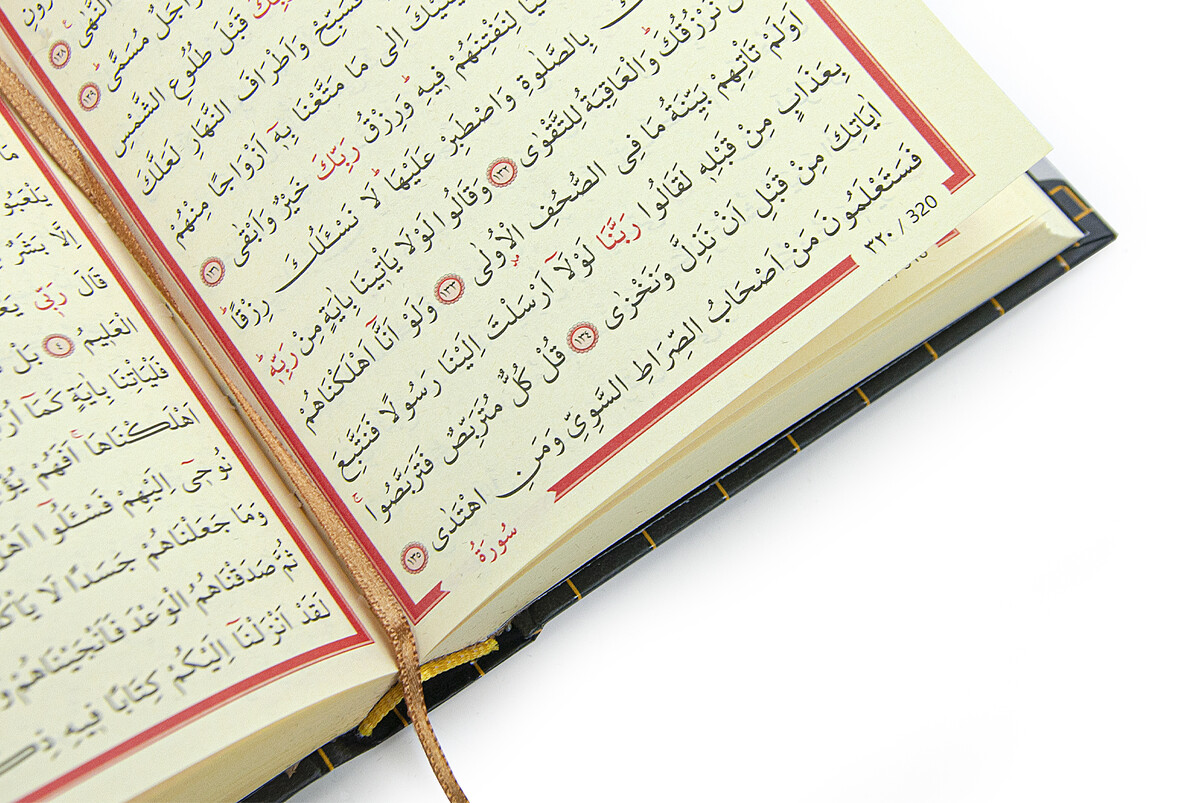 النُّهٰىۚ ﴿١٢٨﴾
وَاَجَلٌ مُسَمًّىۜ ﴿١٢٩﴾
قَبْلَ طُلُوعِ الشَّمْسِ
فَسَبِّحْ وَاَطْرَافَ النَّهَارِ لَعَلَّكَ
اِلٰى مَا مَتَّعْنَا بِهٖٓ اَزْوَاجًا مِنْهُمْ
لِنَفْتِنَهُمْ فِيهِۜ وَرِزْقُ رَبِّكَ خَيْرٌ وَاَبْقٰى ﴿١٣١﴾
بِالصَّلٰوةِ وَاصْطَبِرْ عَلَيْهَاۜ لَا نَسْـَٔلُكَ رِزْقًاۜ
نَرْزُقُكَۜ وَالْعَاقِبَةُ لِلتَّقْوٰى ﴿١٣٢﴾ وَقَالُوا لَوْلَا يَأْتِينَا بِاٰيَةٍ مِنْ رَبِّهٖۜ
اَوَلَمْ تَأْتِهِمْ بَيِّنَةُ مَا فِى الصُّحُفِ الْاُولٰى ﴿١٣٣﴾ وَلَوْ اَنَّٓا اَهْلَكْنَاهُمْ
بِعَذَابٍ مِنْ قَبْلِهٖ لَقَالُوا رَبَّنَا لَوْلَٓا اَرْسَلْتَ اِلَيْنَا رَسُولًا فَنَتَّبِعَ
اٰيَاتِكَ مِنْ قَبْلِ اَنْ نَذِلَّ وَنَخْزٰى ﴿١٣٤﴾ قُلْ كُلٌّ مُتَرَبِّصٌ فَتَرَبَّصُواۚ
فَسَتَعْلَمُونَ مَنْ اَصْحَابُ الصِّرَاطِ السَّوِىِّ وَمَنِ اهْتَدٰى ﴿١٣٥﴾
٣٢٠ / 320
سُورَةُ
مَا
اِلَّا بَشَرٌ
قَالَ رَبّٖى
الْعَلِيمُ ﴿٤﴾ بَلْ
فَلْيَأْتِنَا بِاٰيَةٍ كَمَٓا
اَهْلَكْنَاهَاۚ اَفَهُمْ
نُوحٖٓى اِلَيْهِمْ فَسْـَٔلُٓوا
وَمَا جَعَلْنَاهُمْ جَسَدًا لَا
ثُمَّ صَدَقْنَاهُمُ الْوَعْدَ فَاَنْجَيْنَاهُمْ
لَقَدْ اَنْزَلْنَٓا اِلَيْكُمْ كِتَابًا فِيهِ